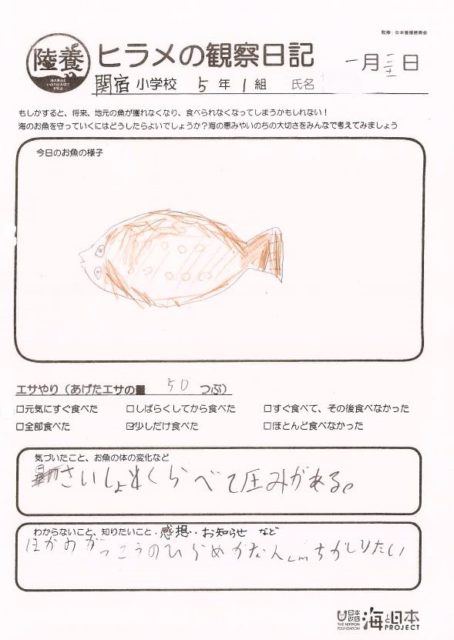 監修:日本養殖振興会
陸養 ヒラメの観察日記 一月二十三日
関宿小学校 5年1組 氏名
もしかすると、将来、地元の魚が獲れなくなり、食べられなくなってしまうかもしれない!
海のお魚を守っていくにはどうしたらよいでしょうか?海の恵みやいのちの大切さをみんなで考えてみましょう
今日のお魚の様子
エサやり(あげたエサの量 50 つぶ)
□元気にすぐ食べた □しばらくしてから食べた □すぐ食べて、その後食べなかった
□全部食べた ☑少しだけ食べた □ほとんど食べなかった
気づいたこと、お魚の体の変化など
さいしょとくらべて圧みがある。
わからないこと、知りたいこと・感想・お知らせ など
ほかのがっこうのひらめがなんcmちがしりたい
日本財団 THE NIPPON FOUNDATION 海と日本 PROJECT